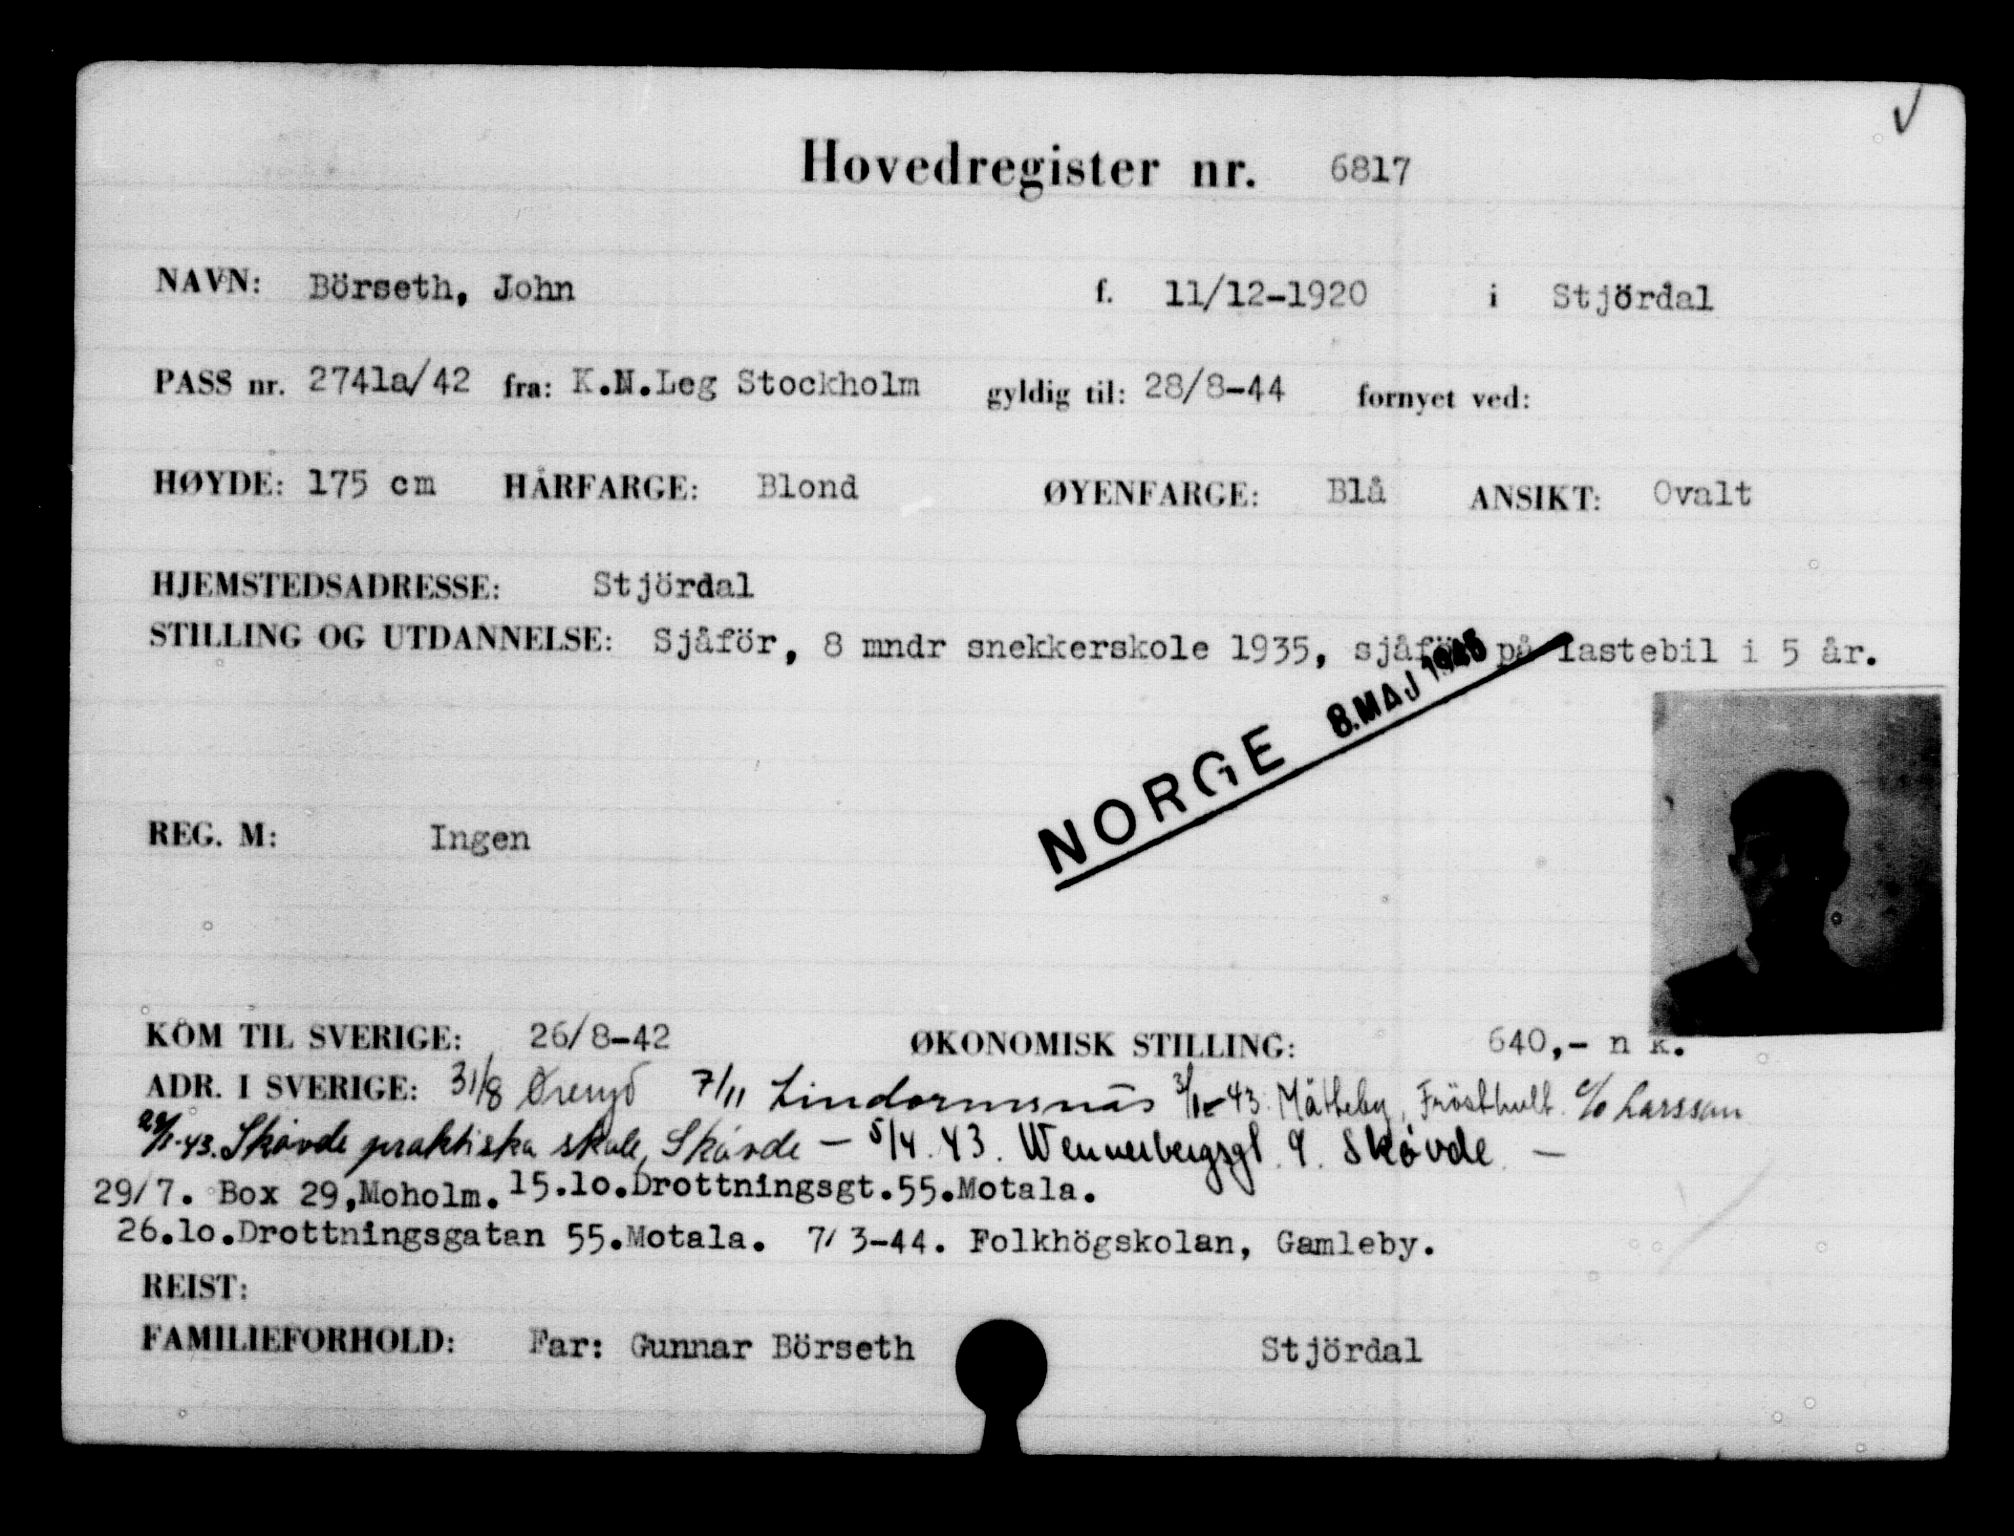 Hovedregister nr. 6817
NAVN: Börseth, John f. 11/12-1920 i Stjördal
PASS nr. 2741a/42 fra: K.N.Leg Stockholm gyldig til: 28/8-44 fornyet ved:
HØYDE: 175 cm HÅRFARGE: Blond ØYENFARGE: Blå ANSIKT: Ovalt
HJEMSTEDSADRESSE: Stjördal
STILLING OG UTDANNELSE: Sjåför, 8 mndr snekkerskole 1935, sjåför på lastebil i 5 år.
NORGE 8. MAJ 1945
REG. M: Ingen
KOM TIL SVERIGE: 26/8-42 ØKONOMISK STILLING: 640,- n k.
ADR. I SVERIGE: 31/8 7/11 Lindormsnäs -43. Frösthult c/o Larsson
-43. Skövde praktiska skole, Skövde – 5/4.43. Wennerbergsgt. 9. Skövde –
29/7. Box 29, Moholm. 15.10.Drottningsgt.55.Motala.
26.10.Drottningsgatan 55.Motala. 7/3-44. Folkhögskolan, Gamleby.
REIST:
FAMILIEFORHOLD: Far: Gunnar Börseth Stjördal